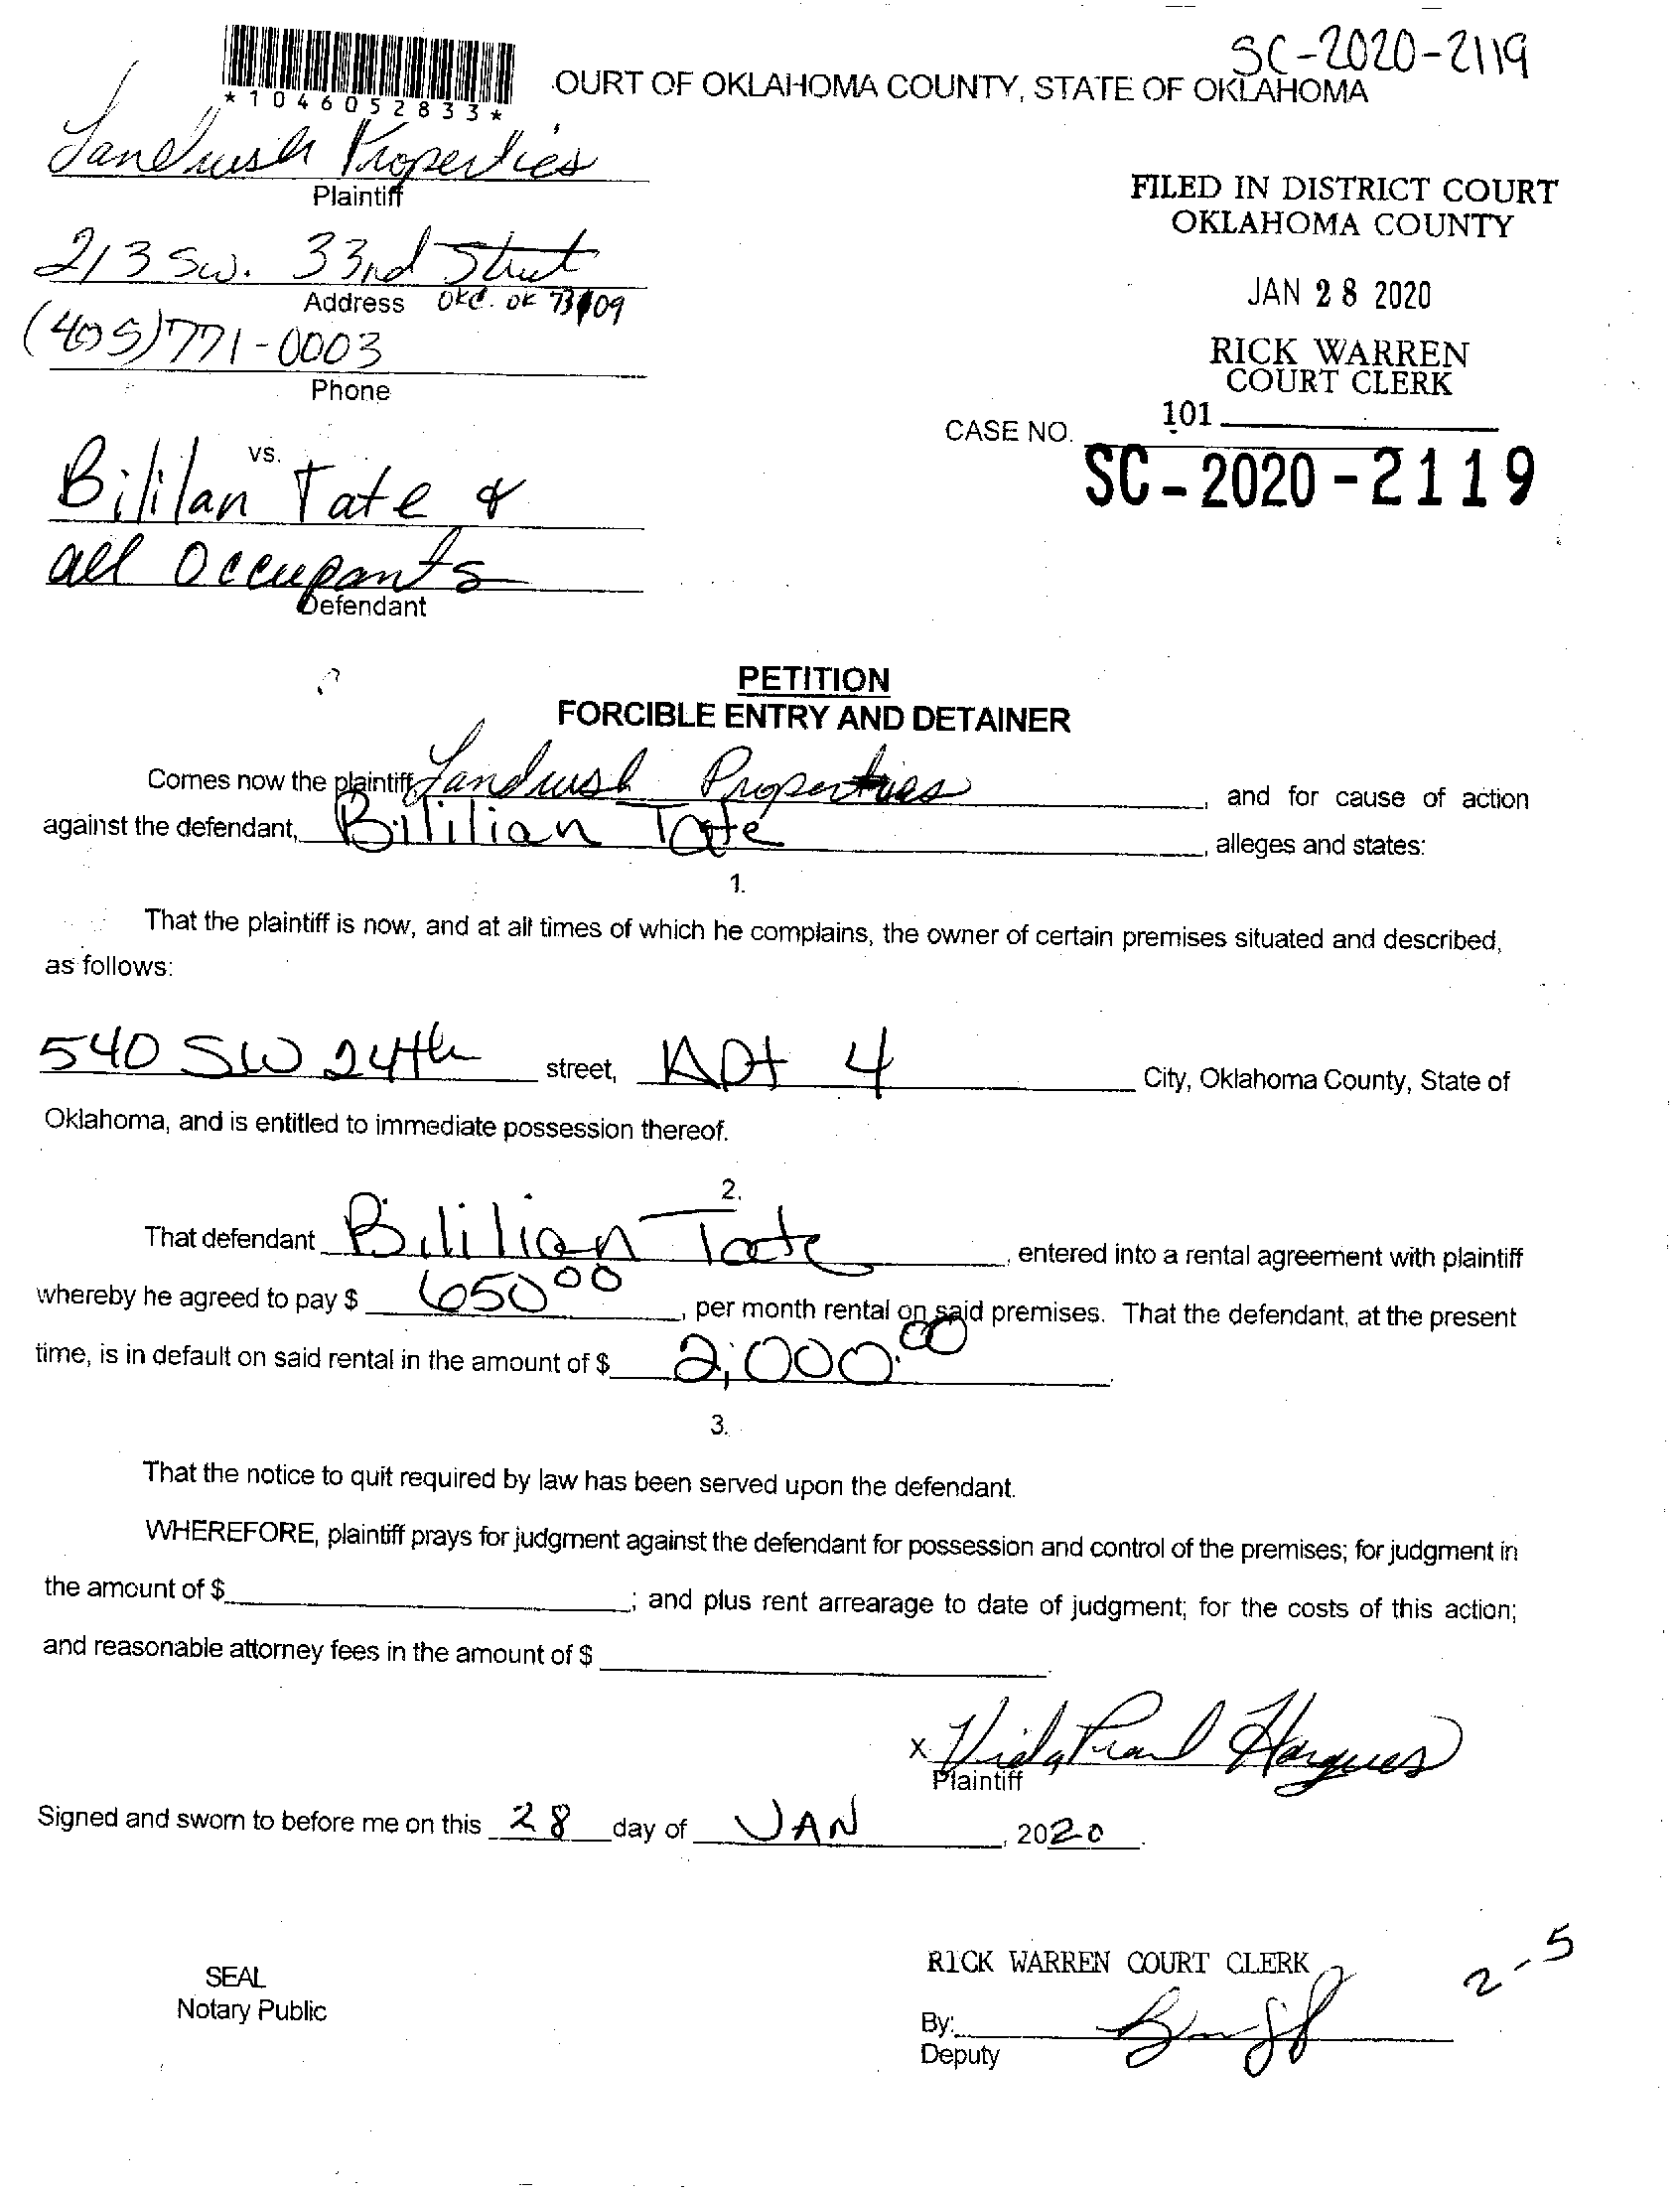 SC-2020-2119
*1046052833*
OURT OF OKLAHOMA COUNTY, STATE OF OKLAHOMA
Landrush Properties
Plaintiff
FILED IN DISTRICT COURT
OKLAHOMA COUNTY
213 SW. 33rd Street
Address OKC. OK 73109
JAN 28 2020
(405)771-0003
Phone
RICK WARREN
COURT CLERK
101
CASE NO.
SC-2020-2119
vs.
Bililan Tate &
all Occupants
Defendant
PETITION
FORCIBLE ENTRY AND DETAINER
Comes now the plaintiff Landrush Properties, and for cause of action
against the defendant, Bililian Tate, alleges and states:
1.
That the plaintiff is now, and at all times of which he complains, the owner of certain premises situated and described,
as follows:
540 SW 24th street, Apt 4 City, Oklahoma County, State of
Oklahoma, and is entitled to immediate possession thereof.
2.
That defendant Bililian Tate, entered into a rental agreement with plaintiff
whereby he agreed to pay $ 650 00, per month rental on said premises. That the defendant, at the present
time, is in default on said rental in the amount of $ 2,000.00.
3.
That the notice to quit required by law has been served upon the defendant.
WHEREFORE, plaintiff prays for judgment against the defendant for possession and control of the premises; for judgment in
the amount of $ ; and plus rent arrearage to date of judgment; for the costs of this action;
and reasonable attorney fees in the amount of $ .
X Vida Hargues
Plaintiff
Signed and sworn to before me on this 28 day of JAN, 2020.
SEAL
Notary Public
RICK WARREN COURT CLERK
2-5
By:
Deputy